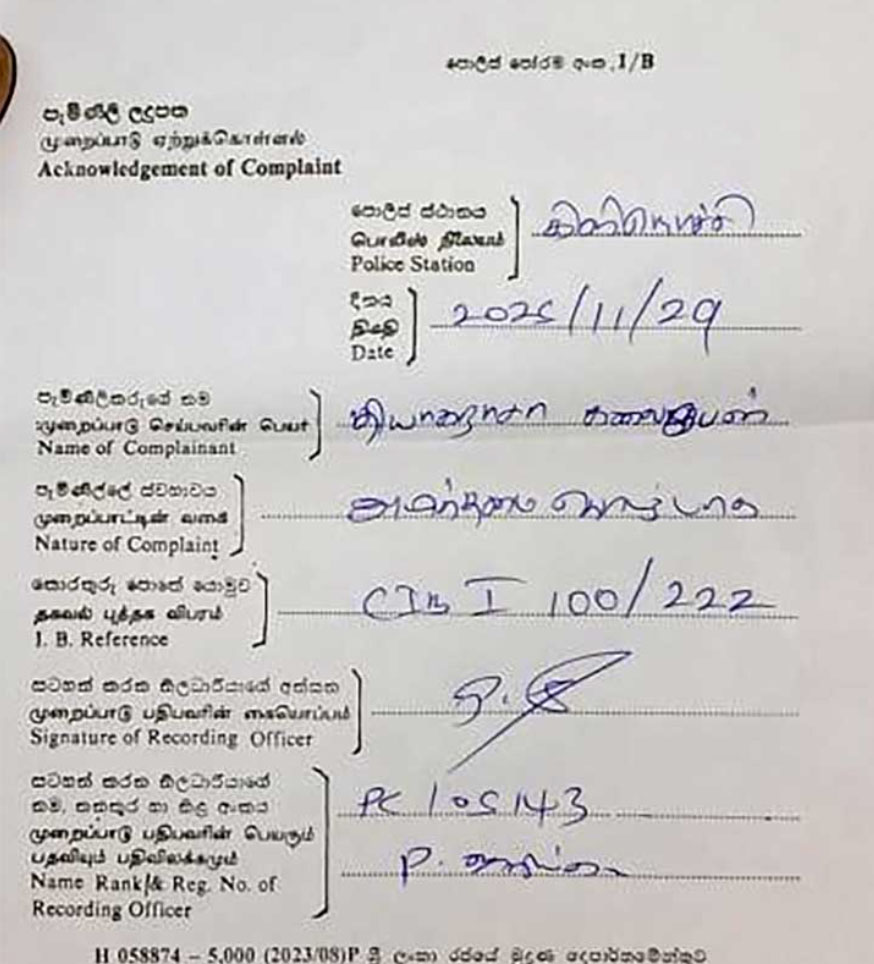 පොලිස් පෝරම අංක, I/B
පැමිණිලි ලදුපත
முறைப்பாடு ஏற்றுக்கொள்ளல்
Acknowledgement of Complaint
පොලිස් ස්ථානය
பொலிஸ் நிலையம்
Police Station
கிளிநொச்சி
දිනය
திகதி
Date
2025/11/29
පැමිණිලිකරුගේ නම
முறைப்பாடு செய்பவரின் பெயர்
Name of Complainant
தியாகராசா
පැමිණිල්ලේ ස්වභාවය
முறைப்பாட்டின் வகை
Nature of Complaint
තොරතුරු පොතේ යොමුව
தகவல் புத்தக விபரம்
I. B. Reference
I 100/222
සටහන් කරන නිලධාරියාගේ අත්සන
முறைப்பாடு பதிபவரின் கையொப்பம்
Signature of Recording Officer
සටහන් කරන නිලධාරියාගේ
නම, තනතුර හා නිල අංකය
முறைப்பாடு பதிபவரின் பெயரும்
பதவியும் பதிவிலக்கமும்
Name Rank & Reg. No. of
Recording Officer
PC 105143
P.
H 058874 – 5,000 (2023/08)P ශ්‍රී ලංකා රජයේ මුද්‍රණ දෙපාර්තමේන්තුව